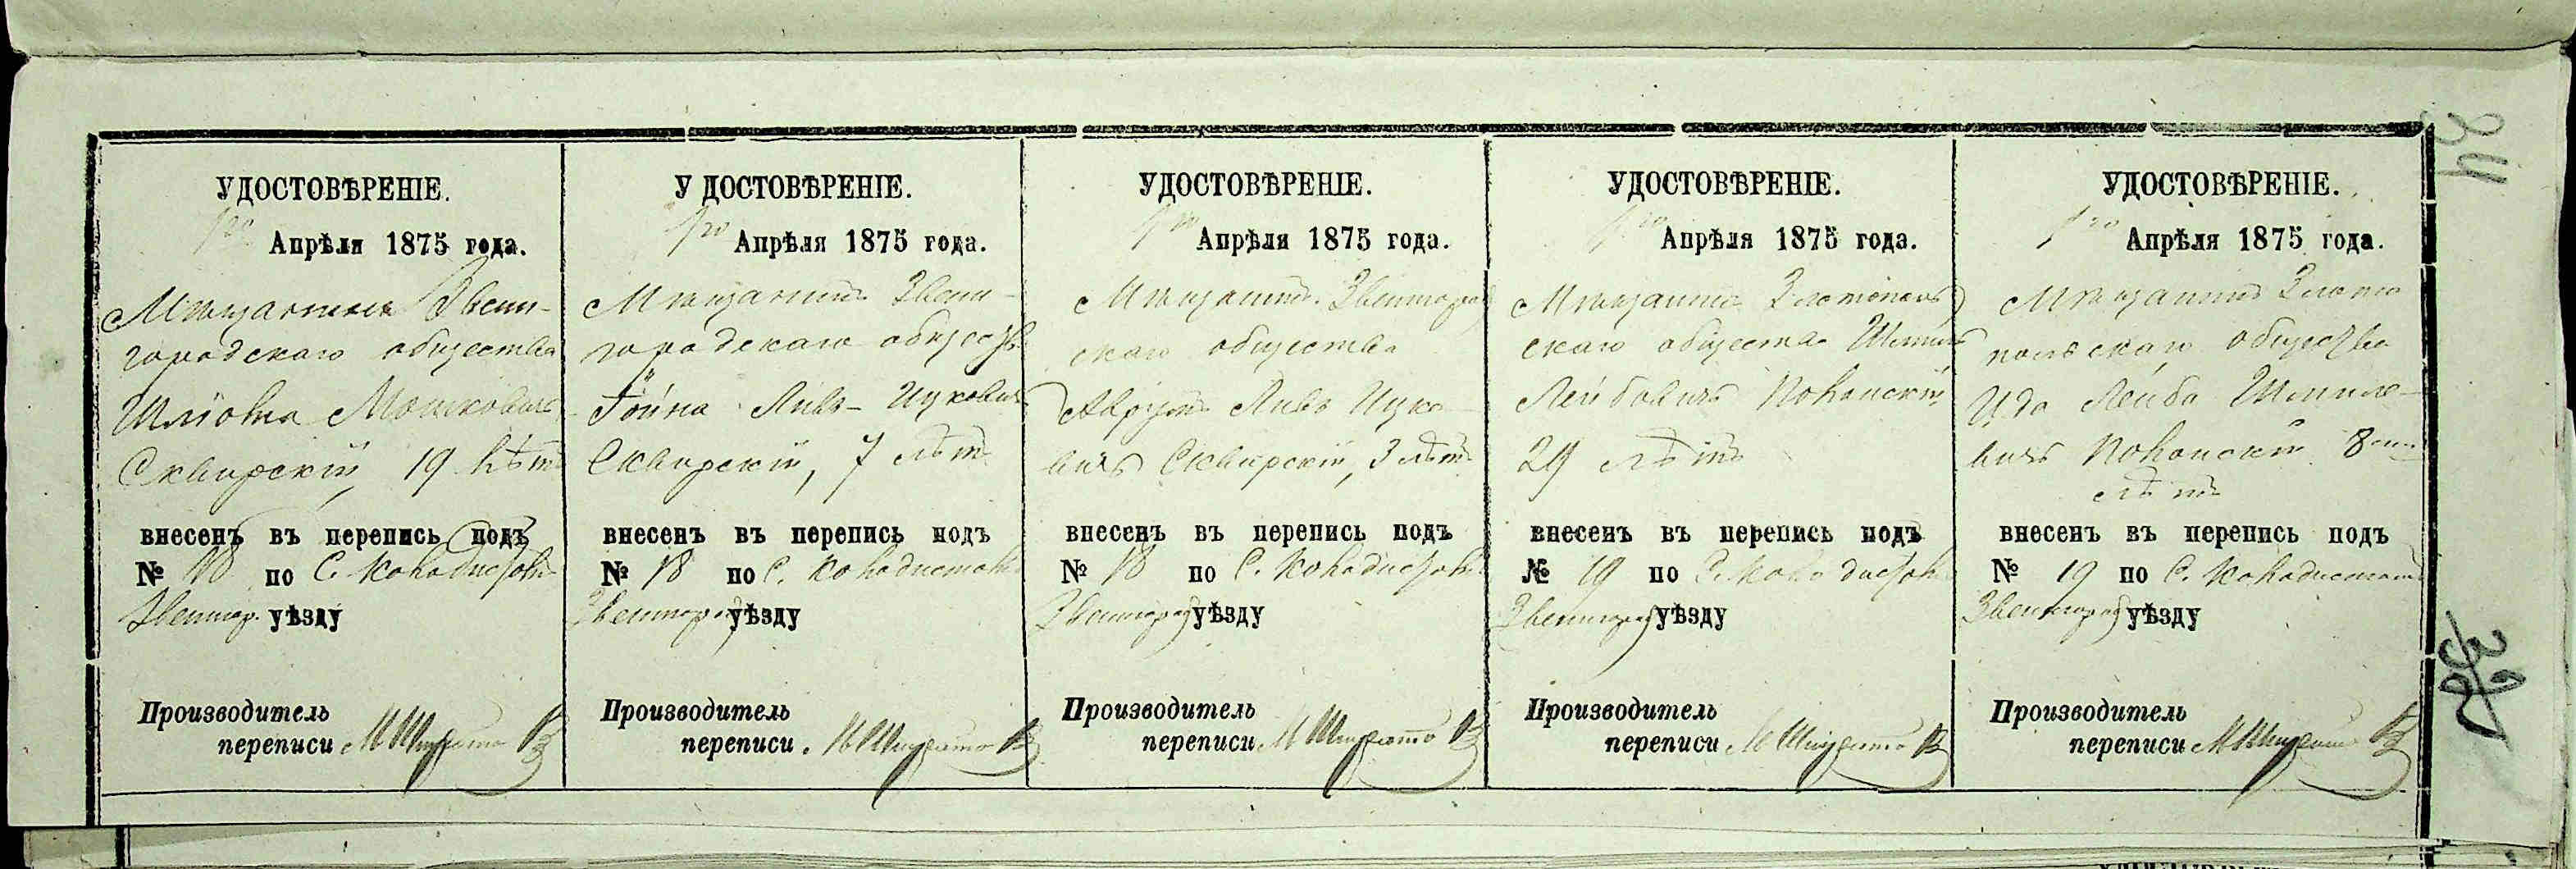 УДОСТОВѢРЕНІЕ.
1го Апрѣля 1875 года.
Мѣщанинъ Звени-
городскаго общества
Шліома Мошковичъ
Сквирскій, 19 лѣтъ
внесенъ въ перепись подъ
№ 18 по С.
Звенигор. уѣзду
Производитель
переписи М
УДОСТОВѢРЕНІЕ.
1го Апрѣля 1875 года.
Мѣщанинъ Звени-
городскаго общества
Ливъ- Ицковичъ
Сквирскій, 7 лѣтъ
внесенъ въ перепись подъ
№ 18 по С.
Звенигород уѣзду
Производитель
переписи М
УДОСТОВѢРЕНІЕ.
1го Апрѣля 1875 года.
Мѣщанинъ Звенигород
скаго общества
Аврумъ Ливъ Ицко-
вичъ Сквирскій, 3 лѣтъ
внесенъ въ перепись подъ
№ 18 по С.
Звенигород уѣзду
Производитель
переписи М
УДОСТОВѢРЕНІЕ.
1го Апрѣля 1875 года.
Мѣщанинъ Златополь
скаго общества Шмиль
Лейбовичъ
29 лѣтъ
внесенъ въ перепись подъ
№ 19 по С.
Звенигород уѣзду
Производитель
переписи М
УДОСТОВѢРЕНІЕ.
1го Апрѣля 1875 года.
Мѣщанинъ Злато
польскаго общества
Лейба Шмиле-
вичъ 8
лѣтъ
внесенъ въ перепись подъ
№ 19 по С.
Звенигород уѣзду
Производитель
переписи М
34